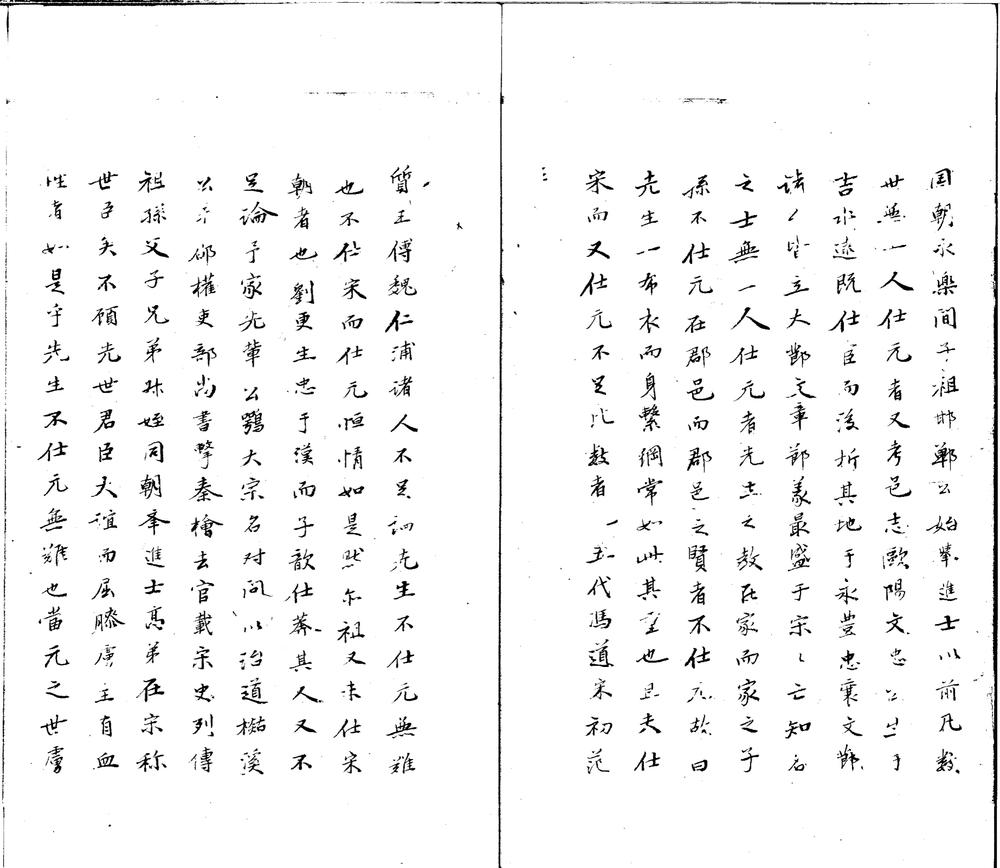 国朝永樂間予祖邯鄲公始舉進士以前凡數
世無一人仕元者又考邑志歐陽文忠公生于
吉水遠既仕臣而後析其地于永豊忠襄文
諸〻皆立大文章節義最盛于宋〻亡知名
之士無一人仕元者先生之教在家而家之子
孫不仕元在郡邑而郡邑之賢者不仕元故曰
先生一布衣而身繫綱常如此其重也且夫仕
宋而又仕元不足比數者一五代馮道宋初范
質王傅魏仁浦諸人不足訓先生不仕元無難
也不仕宋而仕元恒情如是然尔祖又未仕宋
朝者也劉更生忠于漢而子歆仕莽其人又不
足論予家先輩公鶚大宗名对問以治道楶溪
公 邠權吏部尚書擊秦檜去官載宋史列傳
祖孫父子兄弟叔姪同朝奉進士高弟在宗称
世臣矣不顧先世君臣大誼而屈膝虜主有血
性者如是乎先生不仕元無難也當元之世虜